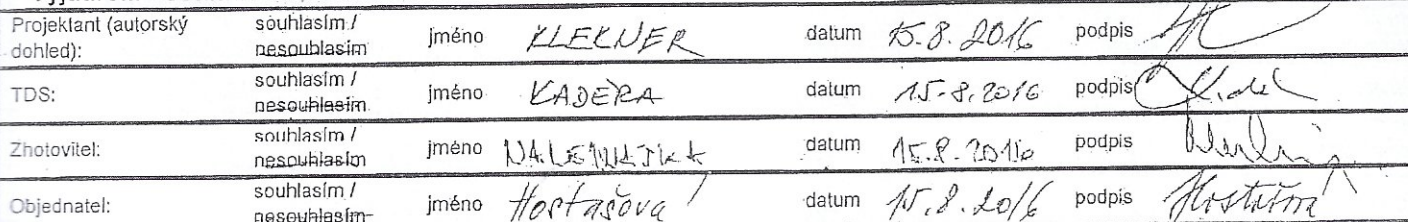 Projektant (autorský dohled): souhlasím / nesouhlasím jméno KLEKNER datum 15.8.2016 podpis
TDS: souhlasím / nesouhlasím jméno KADERA datum 15.8.2016 podpis
Zhotovitel: souhlasím / nesouhlasím jméno datum 15.8.2016 podpis
Objednatel: souhlasím / nesouhlasím jméno Hostašová datum 15.8.2016 podpis Hostašová